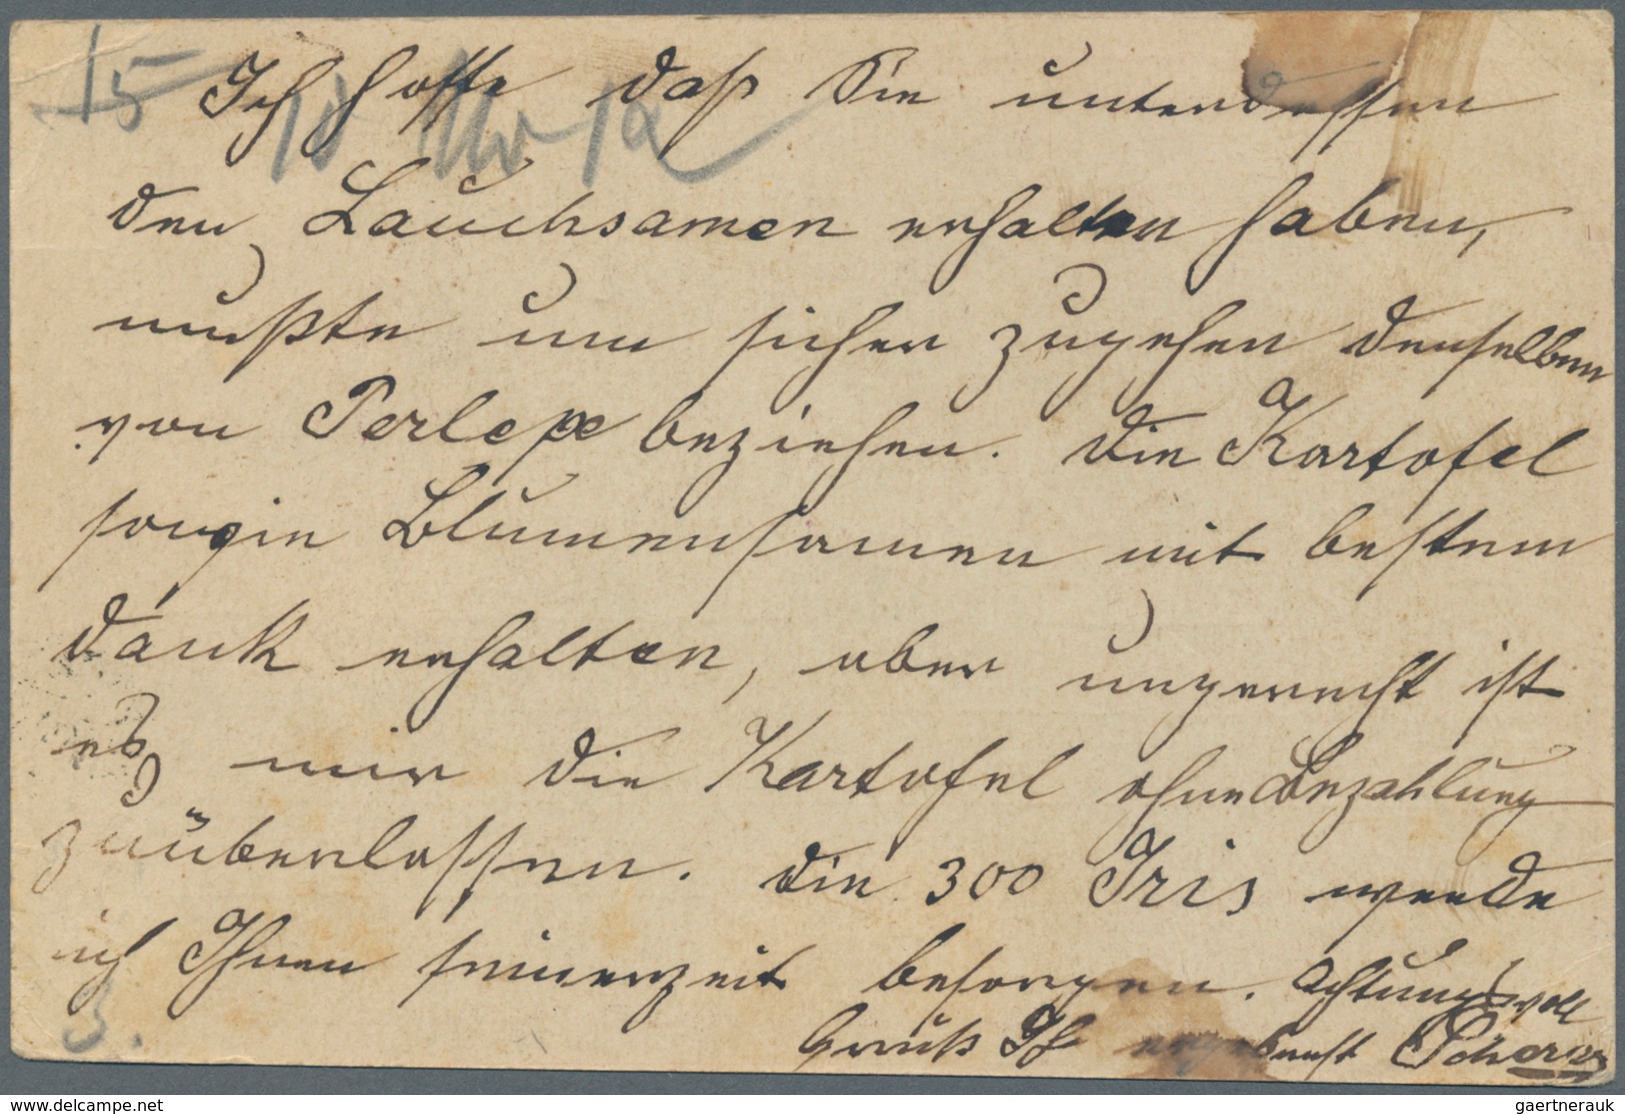 15
Ich hoffe daß Sie unterdessen
den Lauchsamen erhalten haben,
mußte um sicher zugehen denselben
von Perlepe beziehen. Die Kartofel
sowie Blumensamen mit bestem
Dank erhalten, aber ungerecht ist
es, mir die Kartofel ohne Bezahlung
zuüberlassen. Die 300 Iris werde
ich Ihnen seinerzeit besorgen. Achtungsvoll
Gruß Ih ergebenst
3.
www.delcampe.net
gaertnerauk